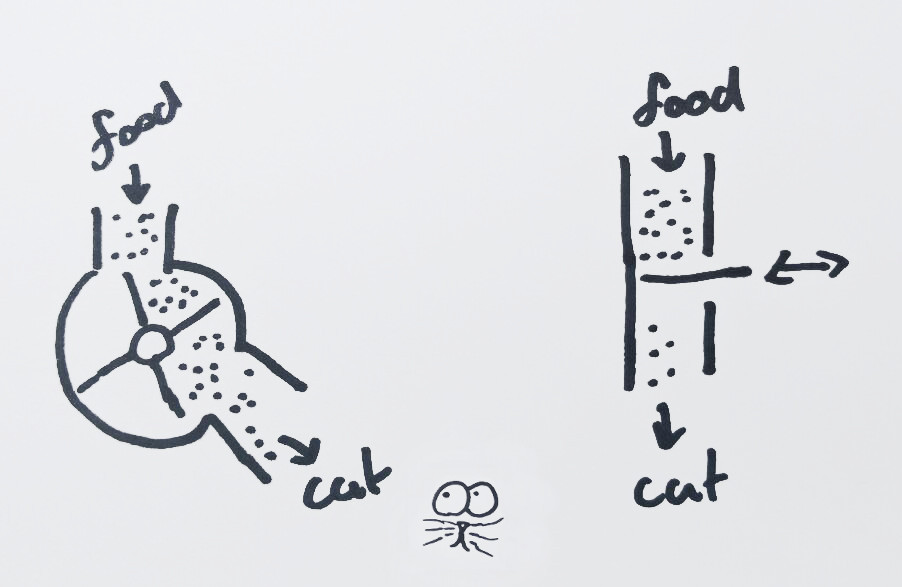 food
cat
food
cat